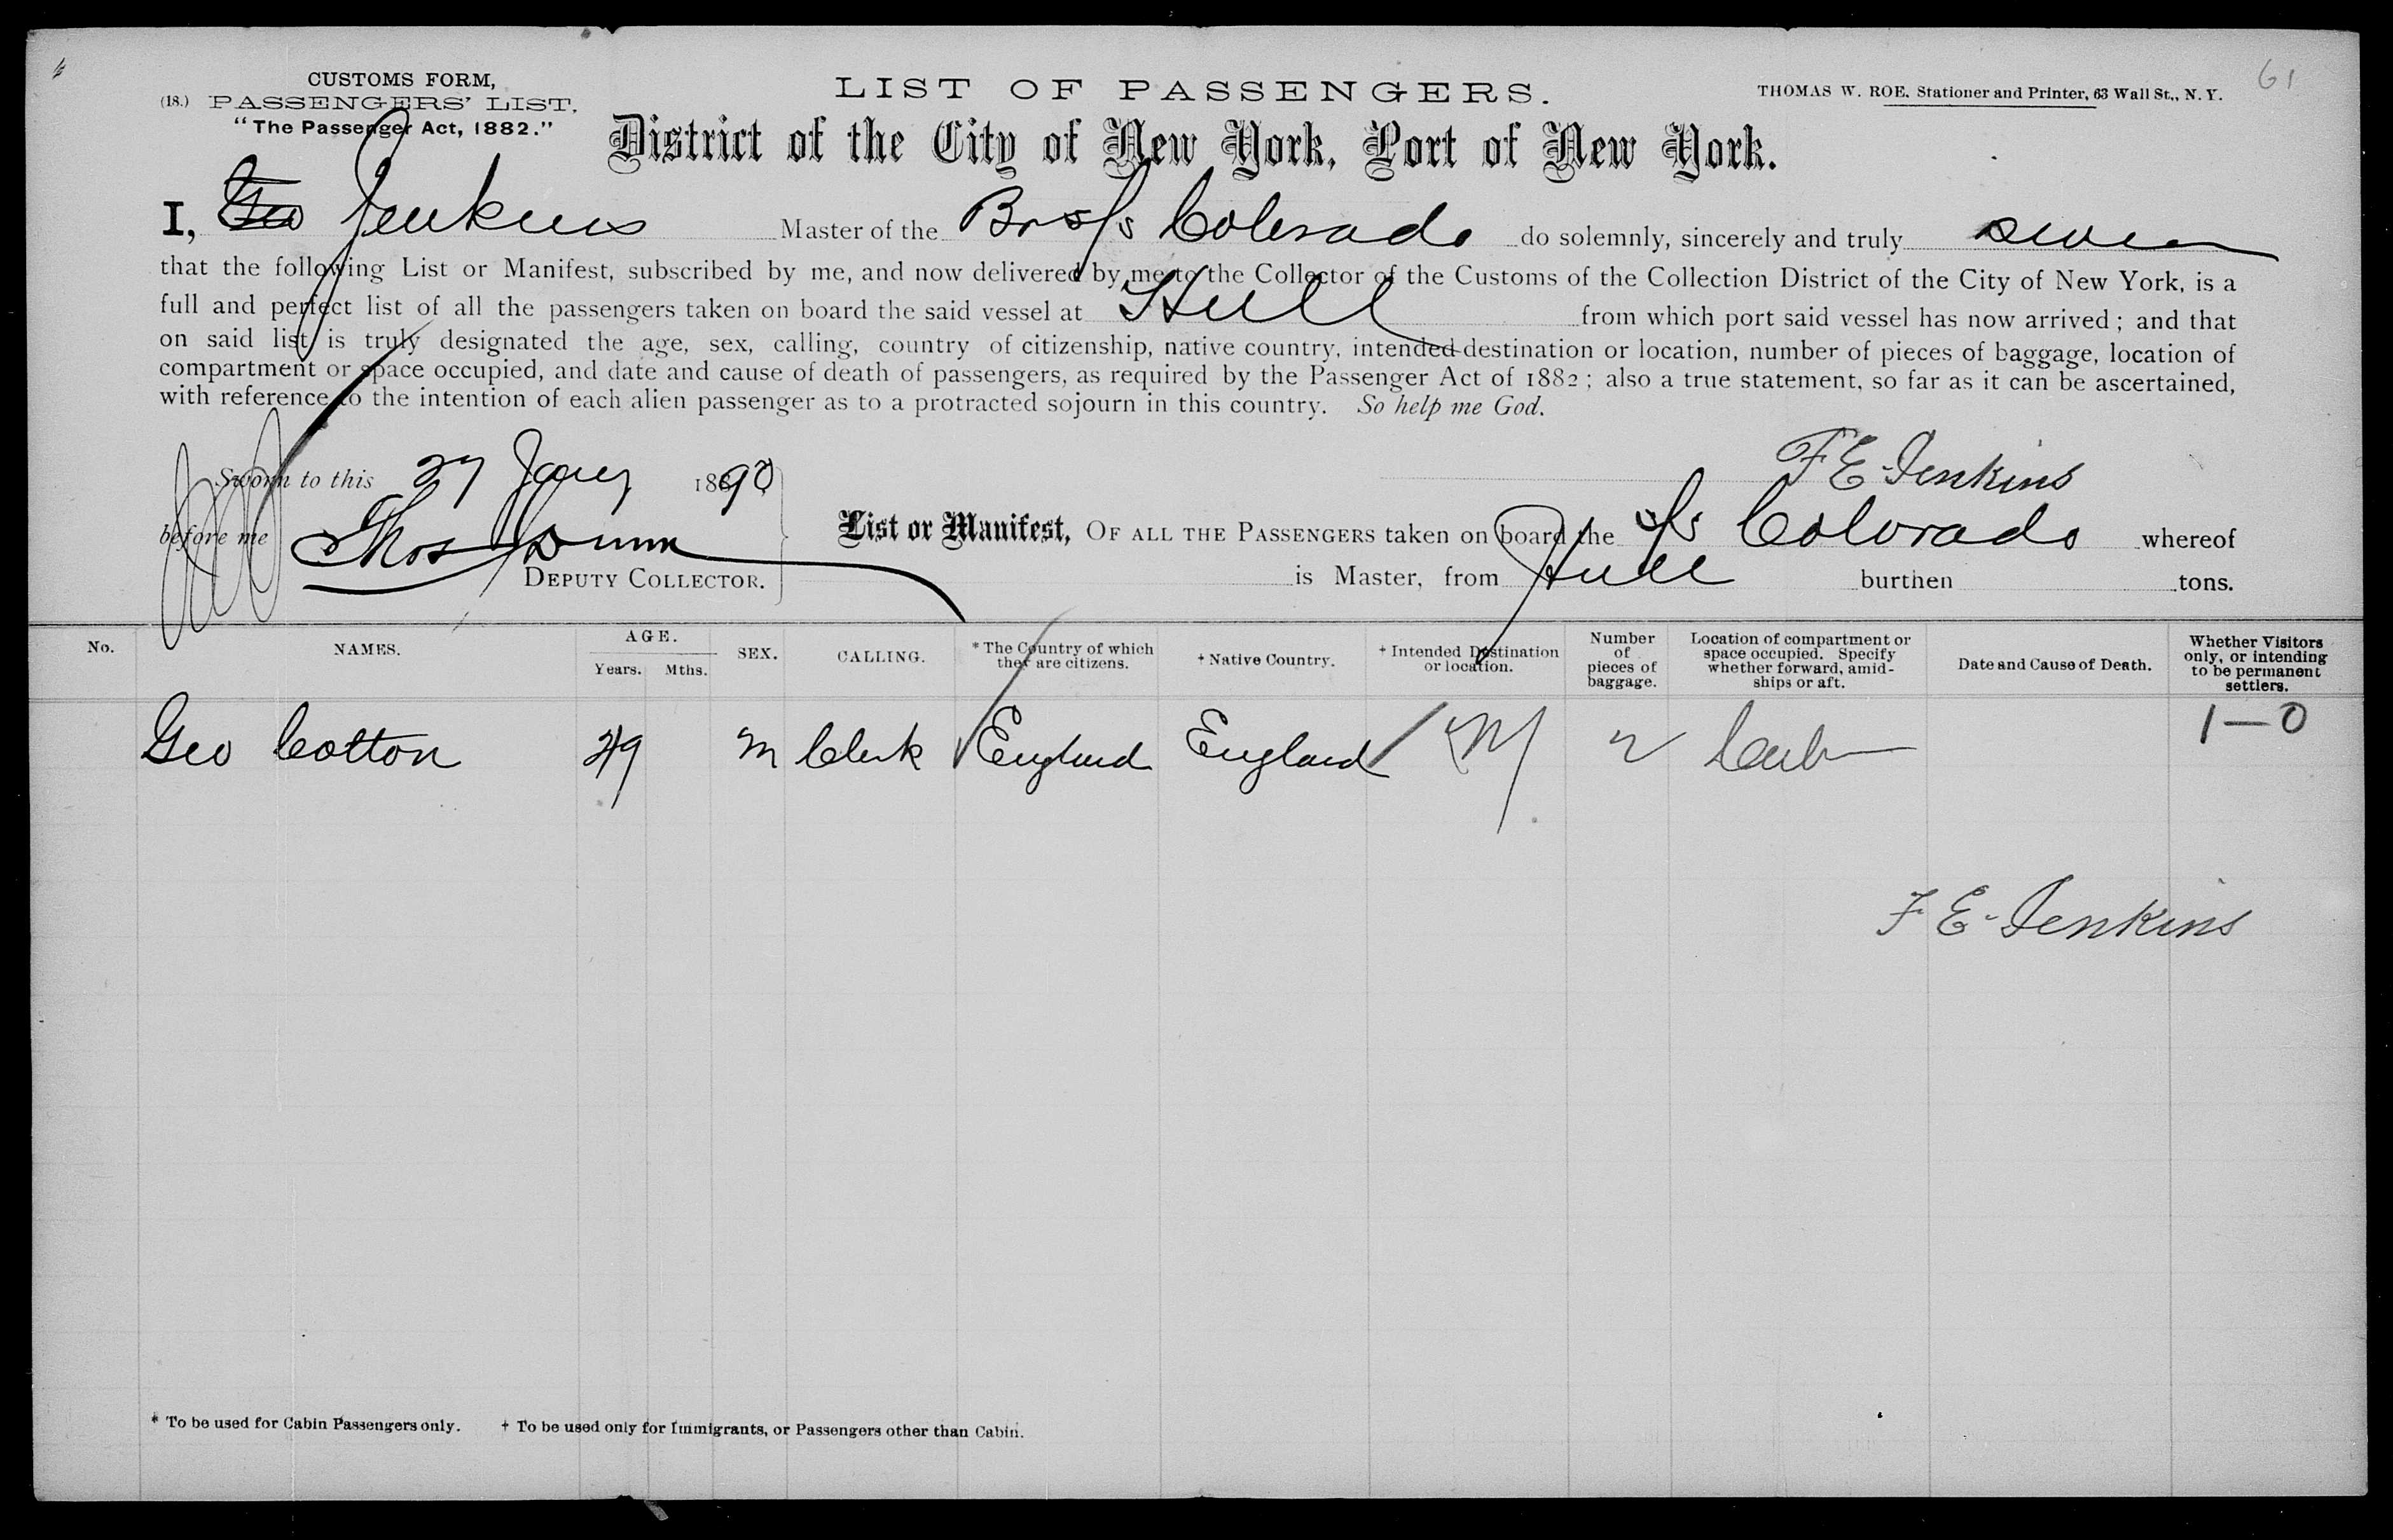 61
CUSTOMS FORM,
(18.) PASSENGERS' LIST.
"The Passenger Act, 1882."
LIST OF PASSENGERS.
THOMAS W. ROE. Stationer and Printer, 63 Wall St., N. Y.
District of the City of New York, Port of New York.
I, Geo Jenkins Master of the Br s/s Colorado do solemnly, sincerely and truly swear
that the following List or Manifest, subscribed by me, and now delivered by me to the Collector of the Customs of the Collection District of the City of New York, is a
full and perfect list of all the passengers taken on board the said vessel at Hull from which port said vessel has now arrived; and that
on said list is truly designated the age, sex, calling, country of citizenship, native country, intended destination or location, number of pieces of baggage, location of
compartment or space occupied, and date and cause of death of passengers, as required by the Passenger Act of 1882; also a true statement, so far as it can be ascertained,
with reference to the intention of each alien passenger as to a protracted sojourn in this country. So help me God.
F E Jenkins
Sworn to this 27 Jany 1890
before me Thos Dunn
DEPUTY COLLECTOR.
List or Manifest, OF ALL THE PASSENGERS taken on board the s/s Colorado whereof
is Master, from Hull burthen tons.
No. NAMES. AGE. Years. Mths. SEX. CALLING. * The Country of which they are citizens. + Native Country. + Intended Destination or location. Number of pieces of baggage. Location of compartment or space occupied. Specify whether forward, amid-ships or aft. Date and Cause of Death. Whether Visitors only, or intending to be permanent settlers.
Geo Cotton 29 m Clerk England England 2 1—0
F E Jenkins
* To be used for Cabin Passengers only. + To be used only for Immigrants, or Passengers other than Cabin.